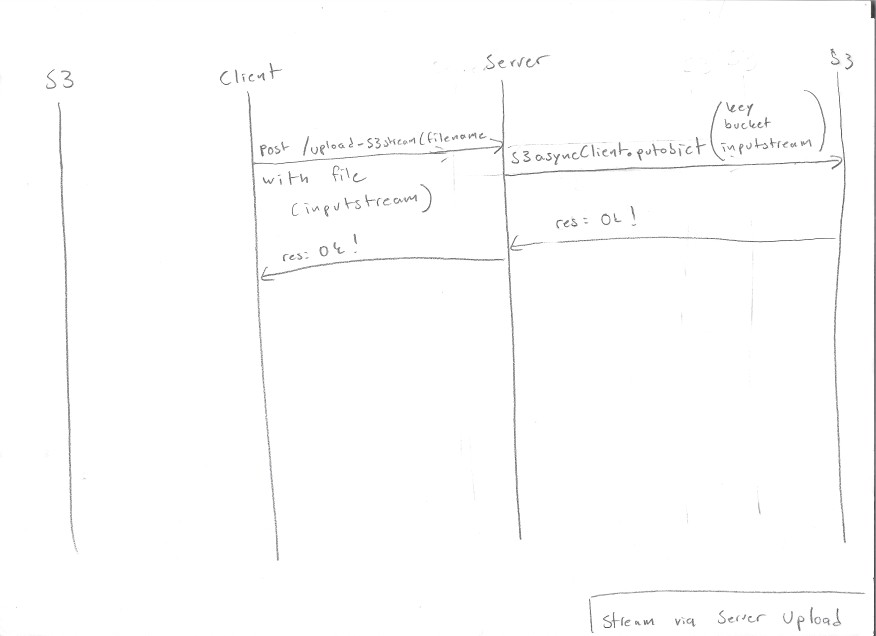 S3
Client
Server
S3
post /upload-S3stream(filename
with file
(inputstream)
S3asyncClient.putobject (key
bucket
inputstream)
res: Ok!
res: Ok!
Stream via Server Upload